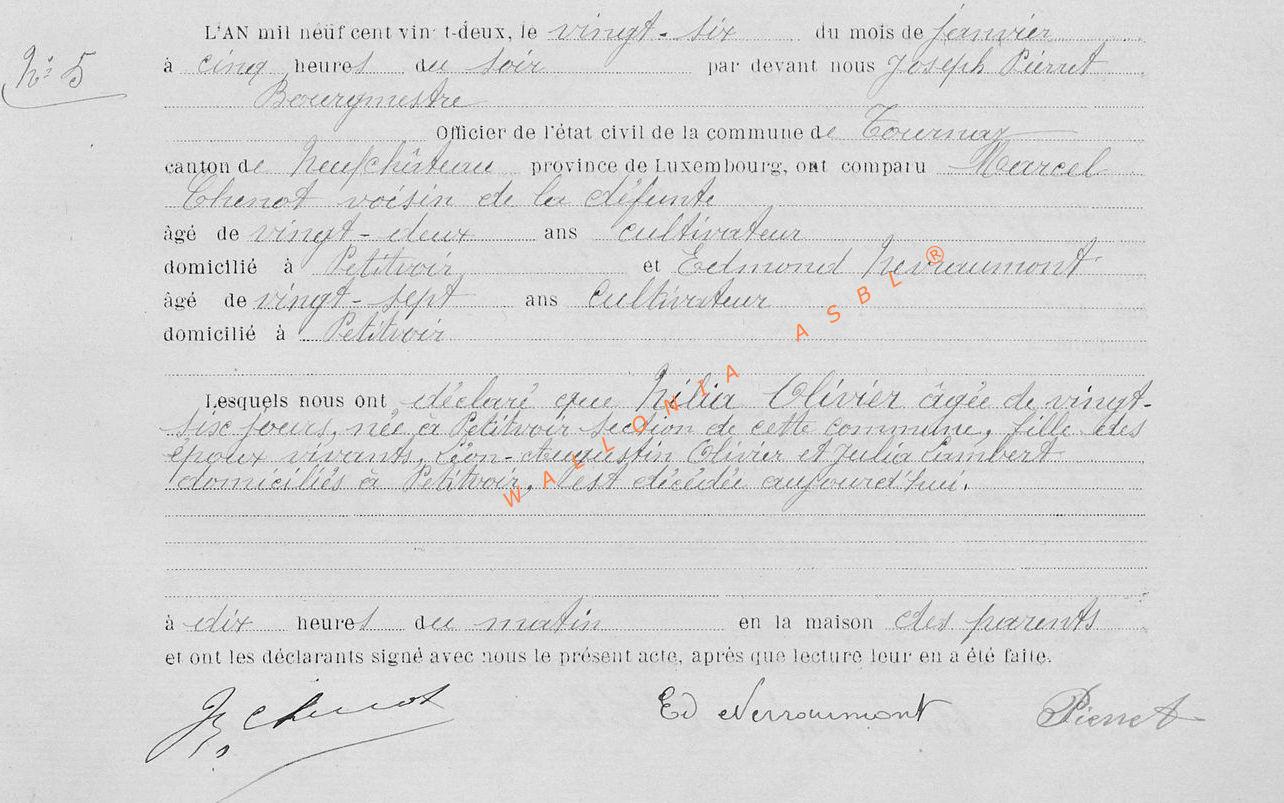 L'AN mil neuf cent vingt-deux, le vingt-six du mois de janvier
N° 5
à cinq heures du soir par devant nous Joseph Pierret
Bourgmestre
Officier de l'état civil de la commune de Tournay
canton de Neufchâteau province de Luxembourg, ont comparu Marcel
Chenot voisin de la défunte
âgé de vingt-deux ans cultivateur
domicilié à Petitvoir et Edmond Nevraumont
âgé de vingt-sept ans cultivateur
domicilié à Petitvoir
Lesquels nous ont déclaré que Nélia Olivier âgée de vingt-
six jours, née à Petitvoir section de cette commune, fille des
époux vivants, Léon-Augustin Olivier et Julia Lambert
domiciliés à Petitvoir, est décédée aujourd'hui.
à dix heures du matin en la maison des parents
et ont les déclarants signé avec nous le présent acte, après que lecture leur en a été faite.
Chenot Ed Nerraumont Pierret
WALLONIA ASBL ®